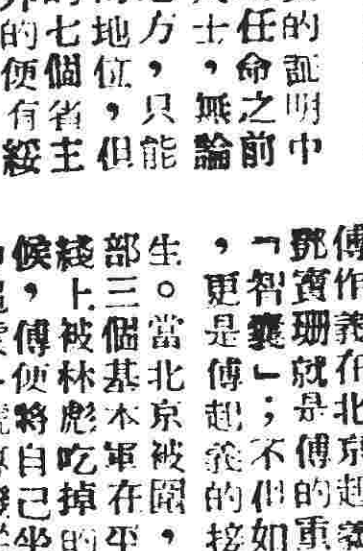 的証明中
任命之前
士，無論
方，只能
地位，但
的七個省主
的便有綏
傅作義在北京起義
鄧寶珊就是傅的重
「智囊」；不但如
，更是傅起義的接
生。當北京被圍，
部三個基本軍在平
綫上被林彪吃掉的
候，傅便將自己坐